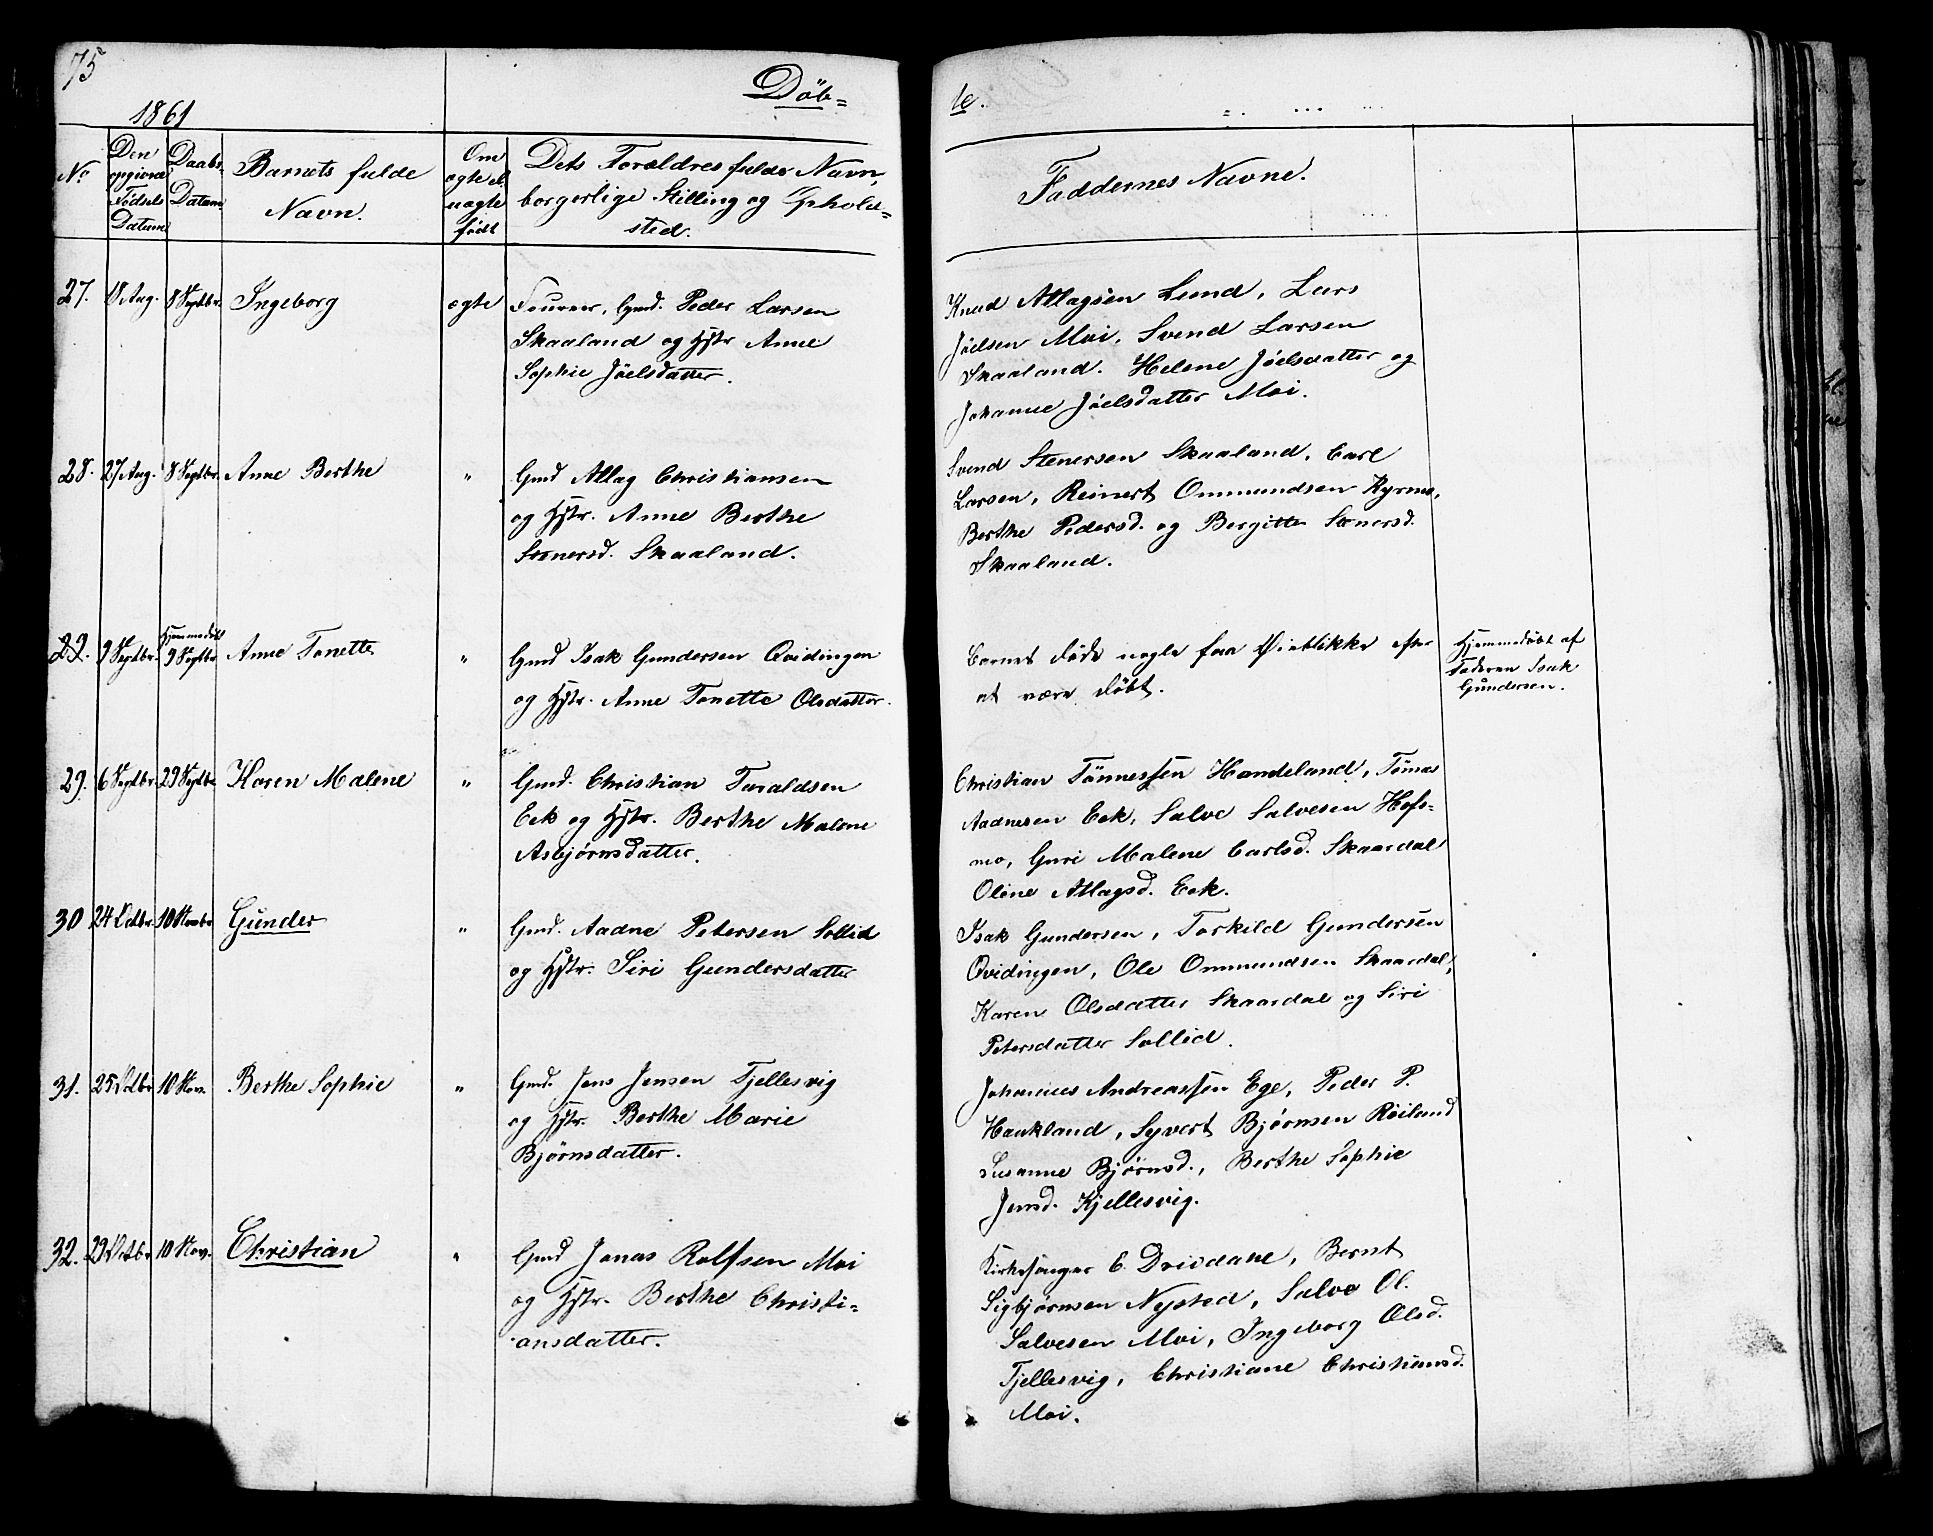 75
1861
Döb=
te.
No
Den opgivne Födsels Datum
Daabs Datum
Barnets fulde Navn.
Om ægte el. uægte födt
Dets Forældres fulde Navn, borgerlige Stilling og Ophold=sted.
Faddernes Navne.
27. 18 Aug. 8 Septbr. Ingeborg ægte
Fourer, Gmd. Peder Larsen
Skaaland og Hstr Anne
Sophie Jöelsdatter.
Knud Atlagsen Lund, Lars
Jöelsen Moi, Svend Larsen
Skaaland. Helene Jöelsdatter og
Johanne Jöelsdatter Moi.
28. 27 Aug. 8 Septbr. Anne Berthe "
Gmd Atlag Christiansen
og Hstr. Anne Berthe
Stenersd. Skaaland.
Svend Stenersen Skaaland, Carl
Larsen, Reinert Ommundsen Kyrmo,
Berthe Pedersd. og Bergitte Stenersd.
Skaaland.
29. 9 Septbr. Hjemmedöbt 9 Septbr Anne Tonette "
Gmd Isak Gundersen Qvidingen
og Hstr. Anne Tonette Olsdatter.
Barnet döde nogle faa Öieblikke efter
at være döbt.
Hjemmedöbt af
Faderen Isak
Gundersen.
29. 6 Septbr. 29 Septbr Karen Malene "
Gmd. Christian Taraldsen
Eek og Hstr. Berthe Malene
Asbjørnsdatter.
Christian Tönnessen Handeland, Tömas
Aadnesen Eek, Salve Salvesen Hofs=
mo, Guri Malene Carlsd. Skaardal
Oline Atlagsd. Eek.
30 24 Octbr. 10 Novbr Gunder "
Gmd. Aadne Petersen Sollid
og Hstr. Siri Gundersdatter
Isak Gundersen, Torkild Gundersen
Qvidingen, Ole Ommundsen Skaardal,
Karen Olsdatter Skaardal og Siri
Petersdatter Sollid.
31. 25 Octbr 10 Nov. Berthe Sophie "
Gmd. Jens Jensen Tjellesvig
og Hstr. Berthe Marie
Bjørnsdatter.
Johannes Andreassen Ege, Peder P.
Haukland, Syvert Bjørnsen Röiland
Susanne Bjørnsd., Berthe Sophie
Jensd. Kjellesvig.
32. 29 Octbr 10 Nov. Christian "
Gmd Jonas Rolfsen Moi
og Hstr. Berthe Christi=
ansdatter.
Kirkesanger E. Drivdahl, Bernt
Sigbjørnsen Nysted, Salve Ol.
Salvesen Moi, Ingeborg Olsd.
Tjellesvig, Christiane Christiansd.
Moi.